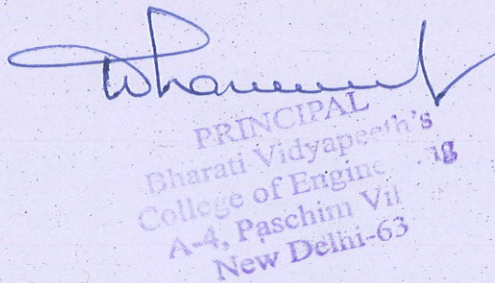 PRINCIPAL
Bharati Vidyapeeth's
College of Engine
A-4, Paschim Vi
New Delhi-63